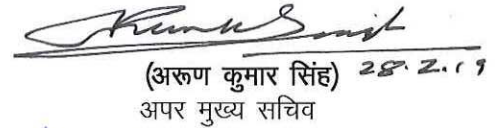 (अरुण कुमार सिंह) 28.2.19
अपर मुख्य सचिव